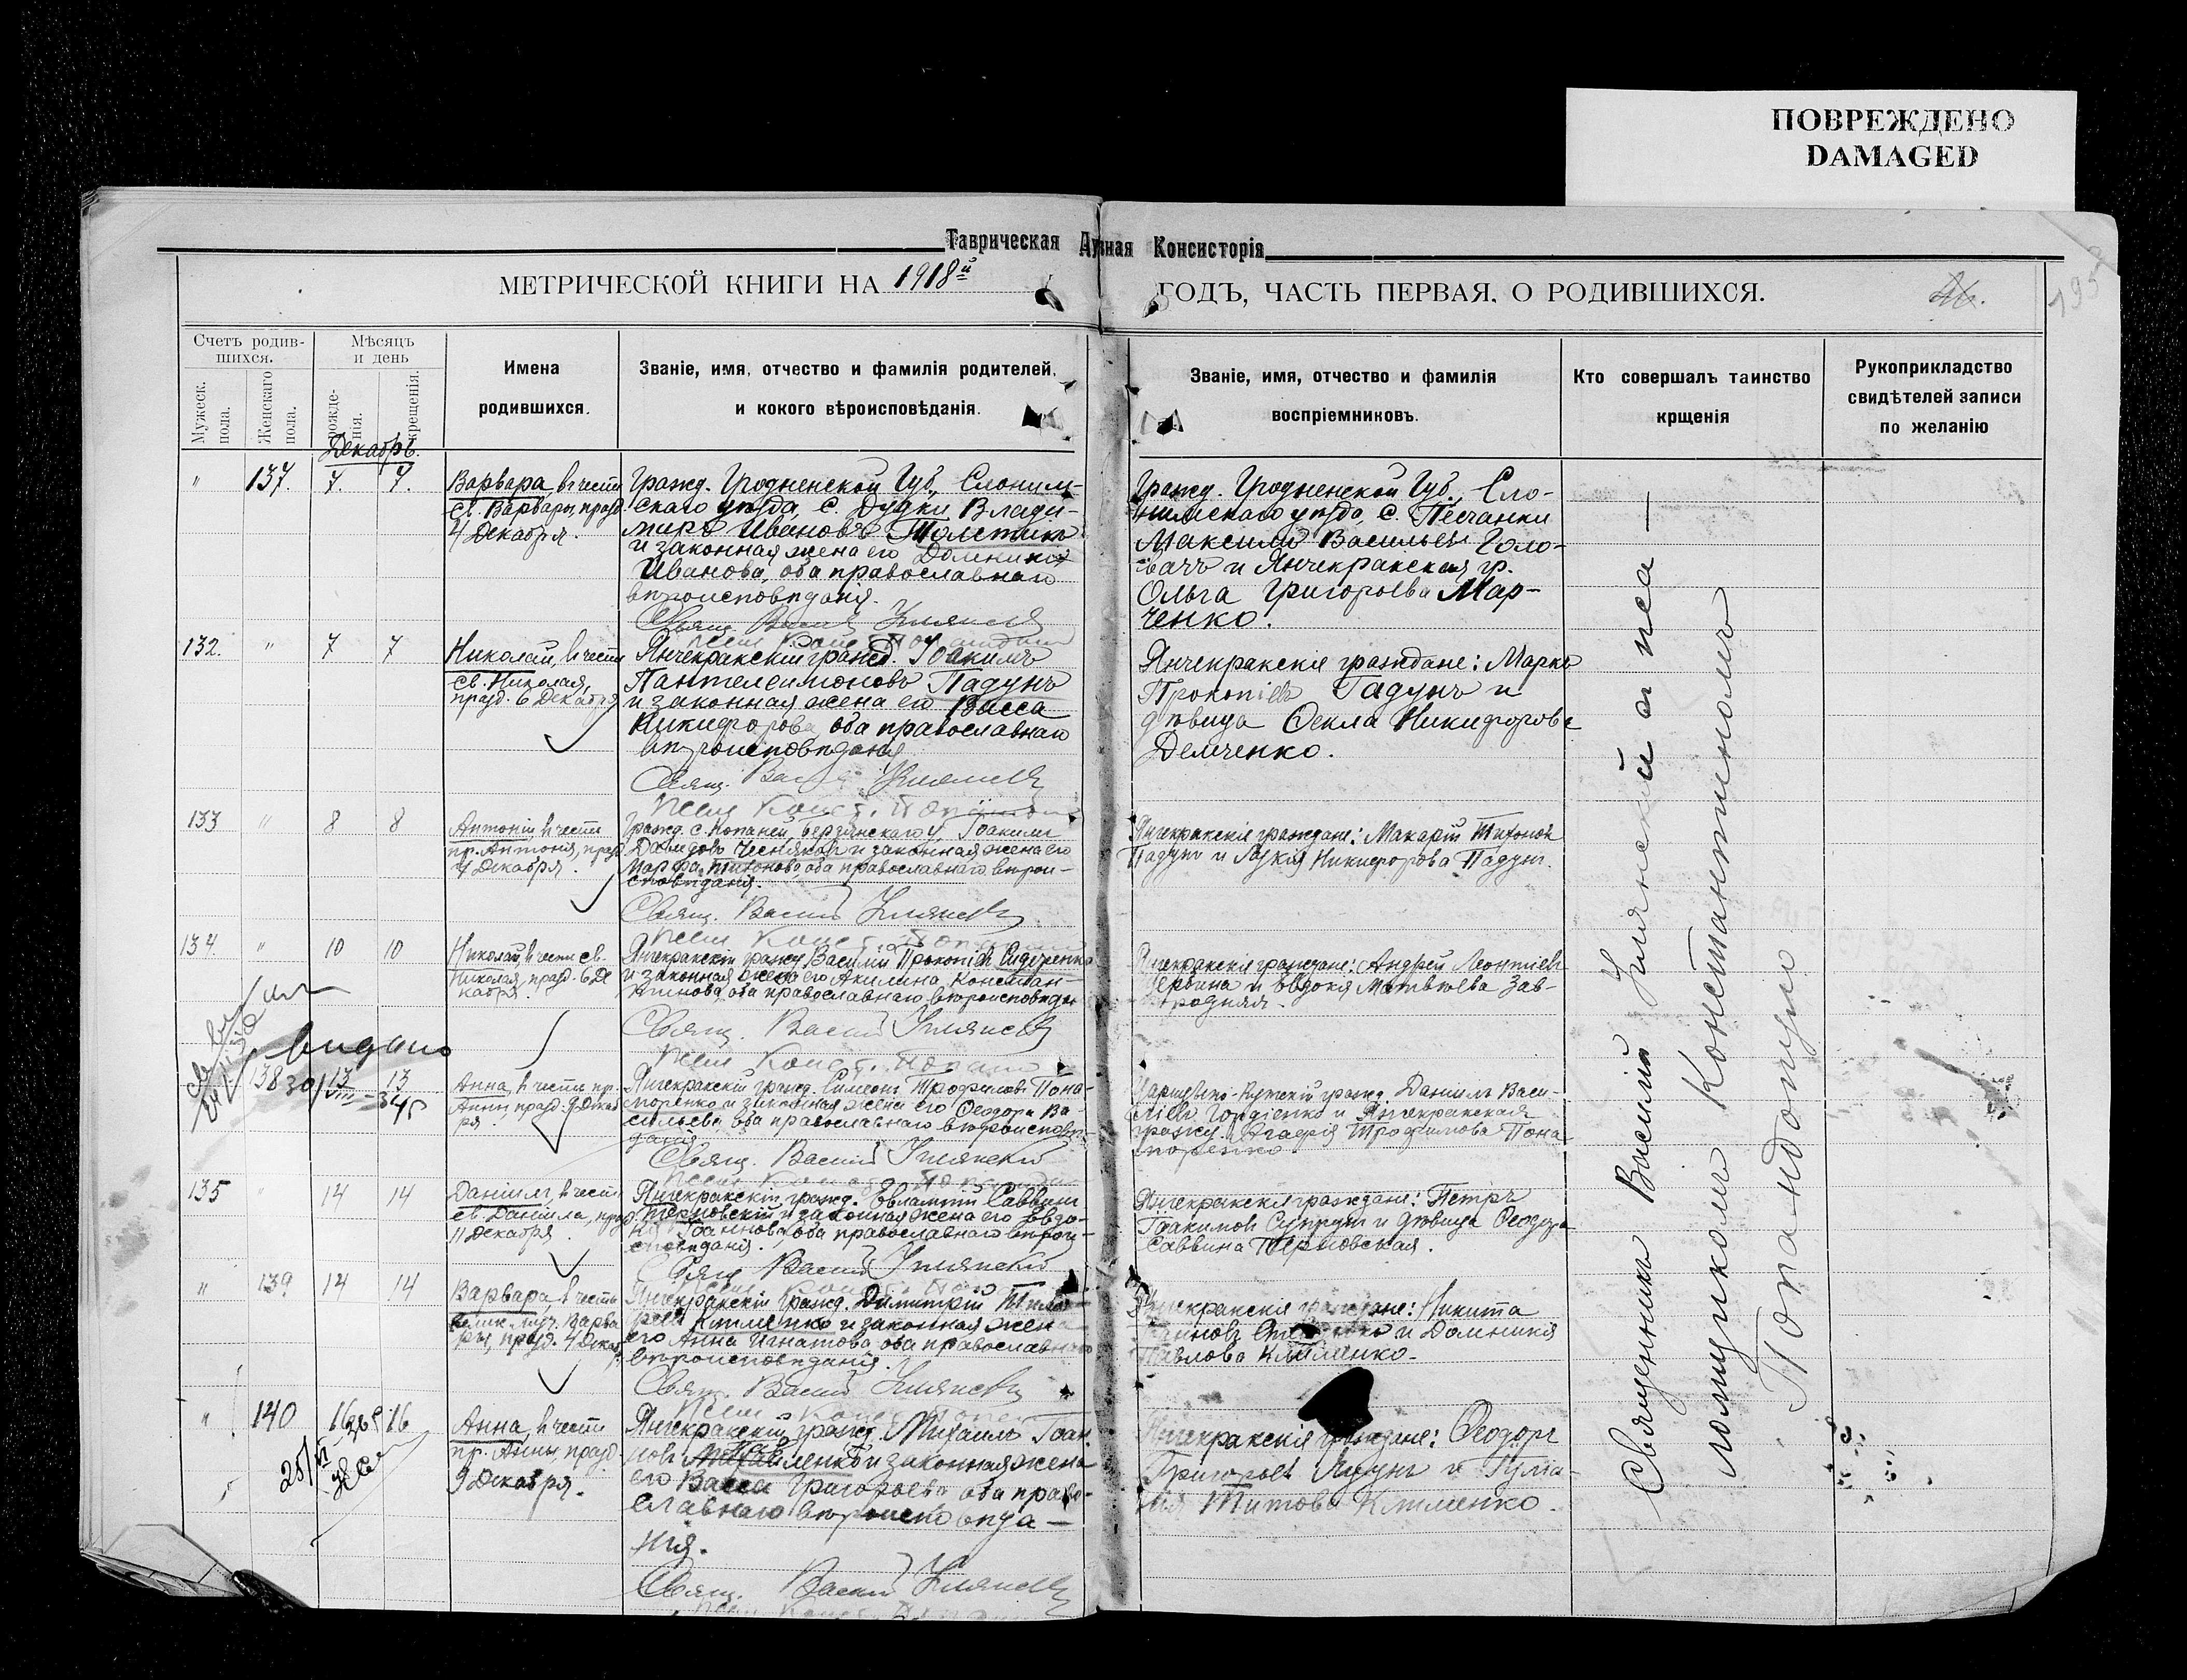 ПОВРЕЖДЕНО
DAMAGED
Таврическая Духовная Консисторія
МЕТРИЧЕСКОЙ КНИГИ НА 1918й ГОДЪ, ЧАСТЬ ПЕРВАЯ, О РОДИВШИХСЯ.
195
Счетъ родив-
шихся.
Мужеск. пола.
Женскаго пола.
Мѣсяцъ
и день
рожде-
нія.
крещенія.
Имена
родившихся.
Званіе, имя, отчество и фамилія родителей,
и кокого вѣроисповѣданія.
Званіе, имя, отчество и фамилія
воспріемниковъ.
Кто совершалъ таинство
крщенія
Рукоприкладство
свидѣтелей записи
по желанію
Декабрь.
" 137. 7. 7.
Варвара, в честь
св. Варвары, празд.
4 Декабря.
Гражд. Гродненской Губ., Слоним-
скаго уѣзда, с. Влади-
миръ Ивановъ Толстикъ
и законная жена его Домникія
Иванова, оба православнаго
вѣроисповѣданія.
Свящ. Василій
Гражд. Гродненской Губ., Сло-
нимскаго уѣзда, с. Песчанки
Максимъ Васильевъ Голо-
вачъ и Янчекракская гр.
Ольга Григорьева Мар-
ченко.
132. " 7 7
Николай, в честь
св. Николая,
празд. 6 Декабря
Янчекракскій гражд. Іоакимъ
Пантелеимоновъ Падунъ
и законная жена его Васса
Никифорова оба православнаго
вѣроисповѣданія
Свящ. Василій
Псал. Конст. Попандопуло
Янчекракскіе граждане: Марко
Прокопіевъ Падунъ и
дѣвица Ѳекла Никифорова
Демченко.
133 " 8 8
Антоній в честь
пр. Антонія, празд.
Декабря.
Гражд. с. Копаней, Бердянскаго у. Іоакимъ
Чесняковъ и законная жена его
Марѳа Тихонова оба православнаго вѣрои-
сповѣданія.
Свящ. Василій
Янчекракскіе граждане: Макарій Тихоновъ
Падунъ и Никифорова Падунъ.
134. " 10 10
Николай, в честь св.
Николая, празд. 6 Де
кабря.
Янчекракскій гражд. Василій Прокопіевъ Сидоренко
и законная жена его Акилина Констан-
тинова, оба православнаго вѣроисповѣдан
Свящ. Василій
Псал. Конст.
Янчекракскіе граждане: Андрей Леонтіевъ
Щербина и Евдокія Матвѣева Зав-
родняя.
видано
138 13 13
Анна, в честь пр.
Анны, празд. 9 Декаб
ря.
Янчекракскій гражд. Симеонъ Трофимовъ Пона-
моренко и законная жена его Ѳеодора Ва-
сильева оба православнаго вѣроисповѣ-
данія.
Свящ. Василій
гражд. Даніилъ Васи-
ліевъ Гордіенко и Янчекракская
гражд. Агафія Трофимова Пона-
моренко.
135 " 14 14
Даніилъ, в честь
св. Даніила, празд
11 Декабря.
Янчекракскій гражд. Евлампій Саввинъ
Терновскій и законная жена его Евдо-
кія Іоаннова, оба православнаго вѣрои-
сповѣданія.
Свящ. Василій
Янчекракскія граждане: Петръ
Іоакимовъ Супрунъ и дѣвица Ѳеодора
Саввина Терновская.
" 139 14 14
Варвара, в честь
велик. муч. Варва
ры, празд. 4 Декаб
Янчекракскій гражд. Димитрій
Клименко и законная жена
его Анна Игнатова оба православнаго
вѣроисповѣданія.
Свящ. Василій
Янчекракскіе граждане: Никита
и Домникія
Павлова Клименко.
" 140 16 16
Анна, в честь
пр. Анны, празд.
9 Декабря.
Янчекракскій гражд. Михаилъ Іоан
новъ и законная жена
его Васса Григорьева оба право-
славнаго вѣроисповѣда-
нія.
Свящ. Василій
Янчекракскія граждане: Ѳеодоръ
Григорьевъ и Іуліа-
нія Титова Клименко.
Священникъ Василій съ пса-
ломщикомъ Константиномъ
Попандопуло